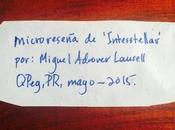 Microreseña de 'Interstellar'
por: Miguel Adrover Lausell
QPeg, PR, mayo-2015.